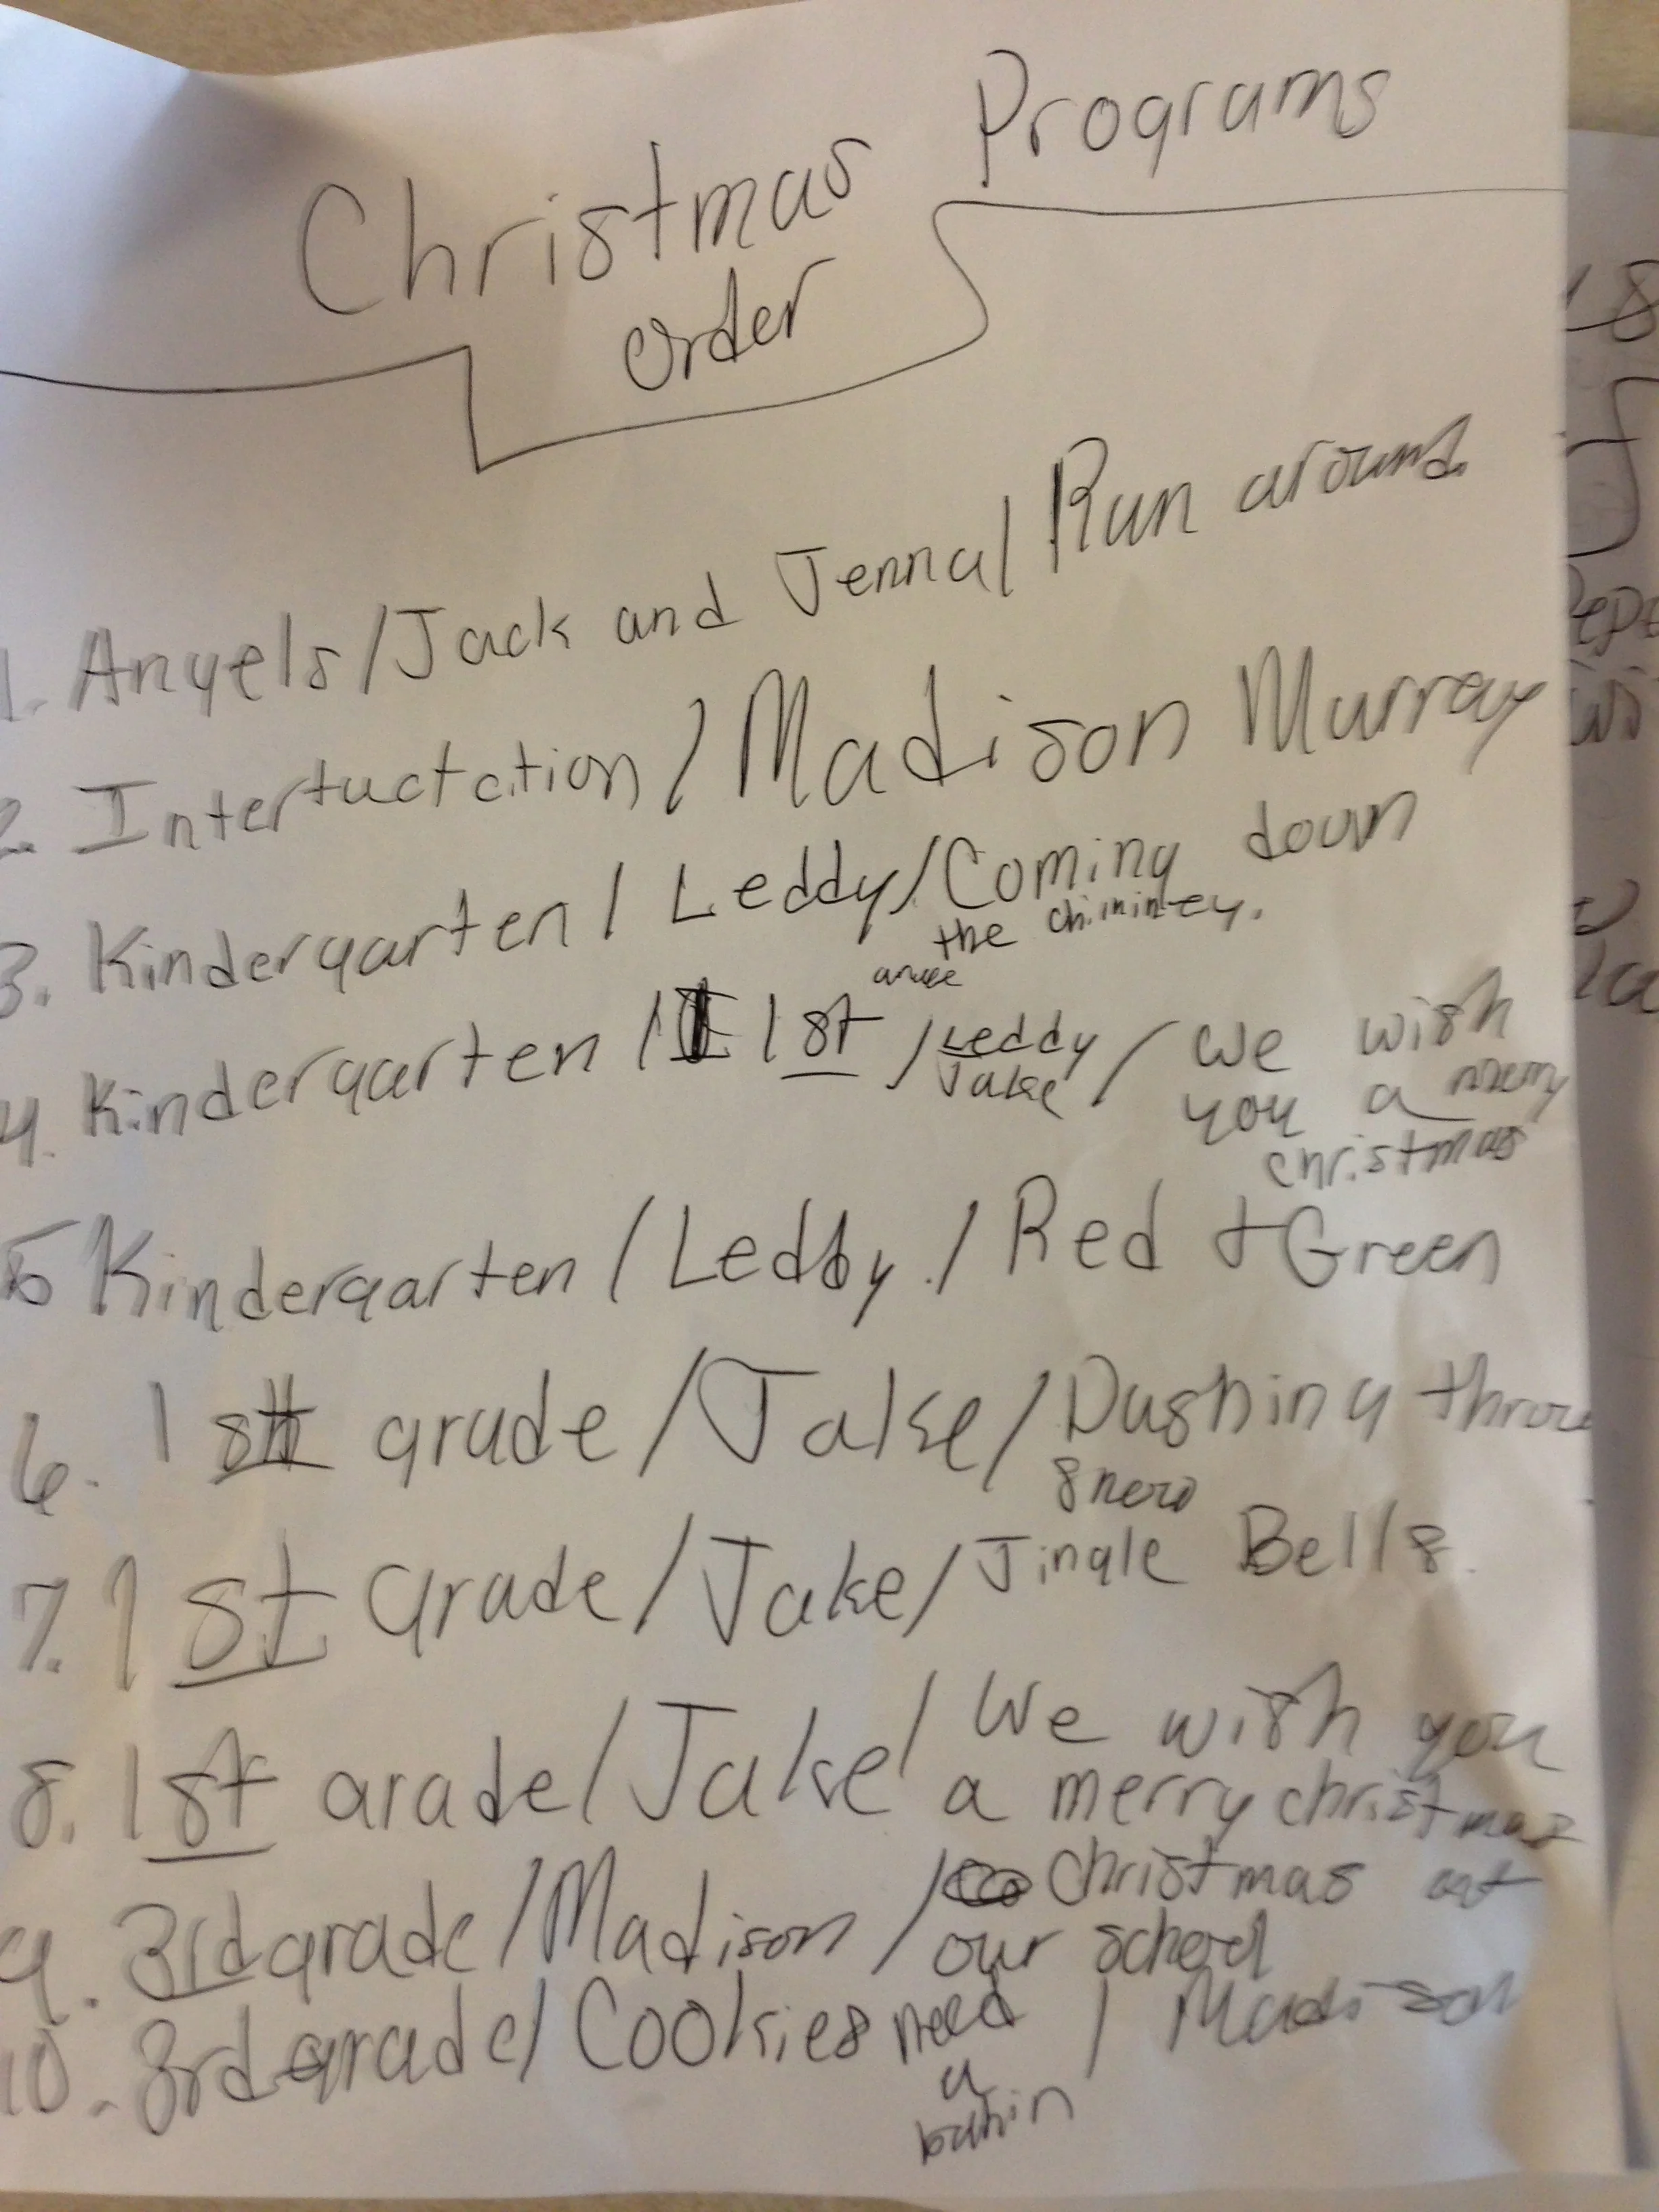 Christmas Programs
order
1. Angels/Jack and Jenna/Run around
2. Intertuctation/Madison Murray
3. Kindergarten/Leddy/Coming down
the chiminey.
4. Kindergarten/1st/Leddy/we wish
Jake you a merry
christmas
5 Kindergarten/Leddy/Red + Green
6. 1st grade/Jake/Dashing throu
snow
7. 1st Grade/Jake/Jingle Bells
8. 1st grade/Jake/We wish you
a merry christmas
9. 3rd grade/Madison/Christmas at
our school
10. 3rd grade/Cookies need/Madison
a